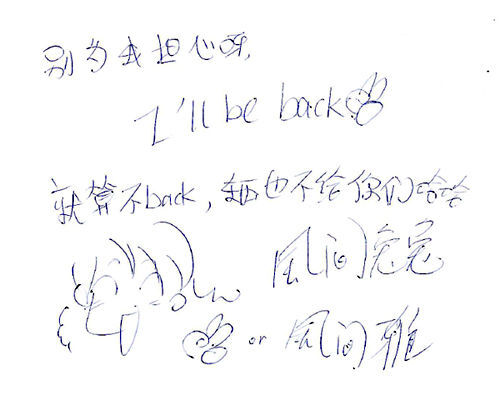 别为我担心呀,
I'll be back
就算不back,东西也不给你们哈哈
風间兔兔
or 風间雅